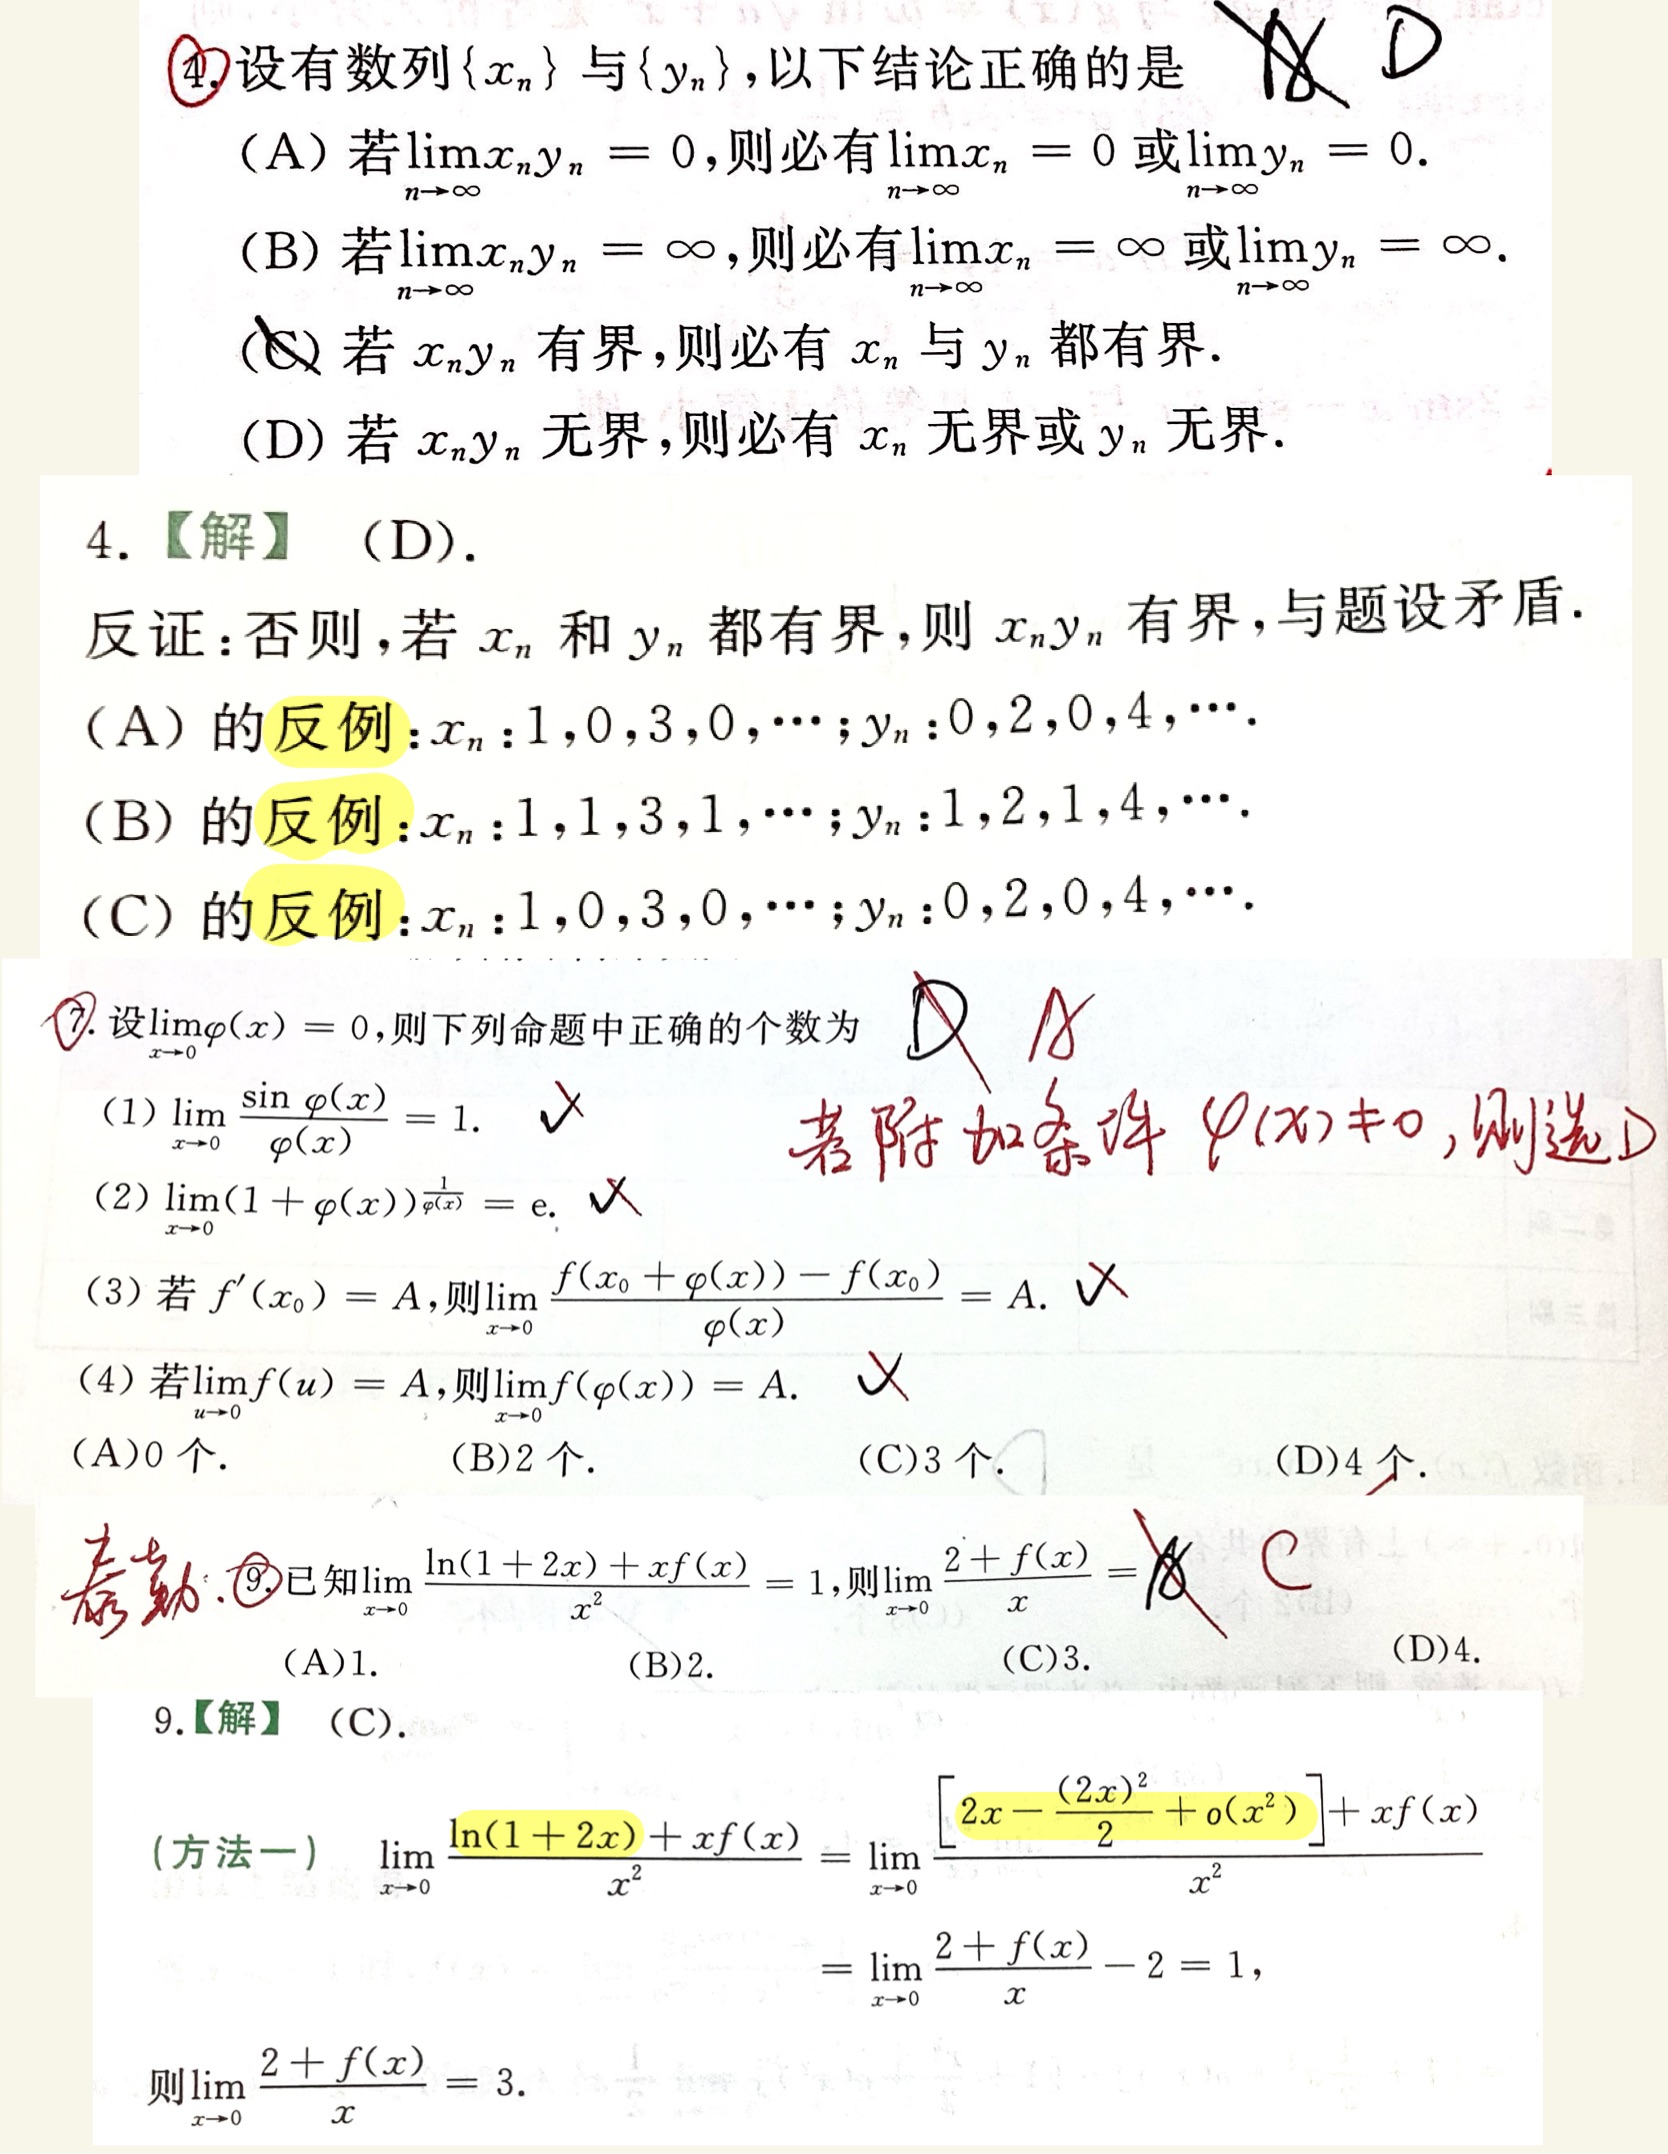 4. 设有数列{xₙ} 与{yₙ},以下结论正确的是 A D
(A) 若lim xₙyₙ = 0,则必有lim xₙ = 0 或lim yₙ = 0.
n→∞ n→∞ n→∞
(B) 若lim xₙyₙ = ∞,则必有lim xₙ = ∞ 或lim yₙ = ∞.
n→∞ n→∞ n→∞
(C) 若 xₙyₙ 有界,则必有 xₙ 与 yₙ 都有界.
(D) 若 xₙyₙ 无界,则必有 xₙ 无界或 yₙ 无界.
4.【解】 (D).
反证:否则,若 xₙ 和 yₙ 都有界,则 xₙyₙ 有界,与题设矛盾.
(A) 的反例:xₙ:1,0,3,0,…;yₙ:0,2,0,4,….
(B) 的反例:xₙ:1,1,3,1,…;yₙ:1,2,1,4,….
(C) 的反例:xₙ:1,0,3,0,…;yₙ:0,2,0,4,….
7. 设lim φ(x) = 0,则下列命题中正确的个数为 D A
x→0
(1) lim sin φ(x)/φ(x) = 1.
x→0
若附加条件 φ(x)≠0,则选D
(2) lim(1+φ(x))^(1/φ(x)) = e.
x→0
(3) 若 f′(x₀) = A,则lim [f(x₀+φ(x))−f(x₀)]/φ(x) = A.
x→0
(4) 若lim f(u) = A,则lim f(φ(x)) = A.
u→0 x→0
(A)0 个. (B)2 个. (C)3 个. (D)4 个.
泰勒: 9. 已知lim [ln(1+2x)+xf(x)]/x² = 1,则lim [2+f(x)]/x = A C
x→0 x→0
(A)1. (B)2. (C)3. (D)4.
9.【解】 (C).
(方法一) lim [ln(1+2x)+xf(x)]/x² = lim {[2x−(2x)²/2+o(x²)]+xf(x)}/x²
x→0 x→0
= lim [2+f(x)]/x −2 = 1,
x→0
则lim [2+f(x)]/x = 3.
x→0